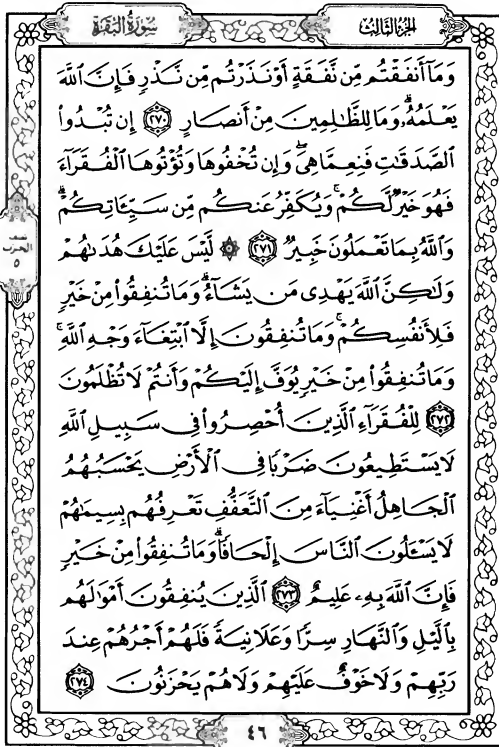 الجزء الثالث
سورة البقرة
وَمَآ أَنفَقْتُم مِّن نَّفَقَةٍ أَوْ نَذَرْتُم مِّن نَّذْرٍ فَإِنَّ ٱللَّهَ
يَعْلَمُهُۥ ۗ وَمَا لِلظَّٰلِمِينَ مِنْ أَنصَارٍ ٢٧٠ إِن تُبْدُوا۟
ٱلصَّدَقَٰتِ فَنِعِمَّا هِىَ ۖ وَإِن تُخْفُوهَا وَتُؤْتُوهَا ٱلْفُقَرَآءَ
فَهُوَ خَيْرٌ لَّكُمْ ۚ وَيُكَفِّرُ عَنكُم مِّن سَيِّـَٔاتِكُمْ ۗ
وَٱللَّهُ بِمَا تَعْمَلُونَ خَبِيرٌ ٢٧١ ۞ لَّيْسَ عَلَيْكَ هُدَىٰهُمْ
وَلَٰكِنَّ ٱللَّهَ يَهْدِى مَن يَشَآءُ ۗ وَمَا تُنفِقُوا۟ مِنْ خَيْرٍ
فَلِأَنفُسِكُمْ ۚ وَمَا تُنفِقُونَ إِلَّا ٱبْتِغَآءَ وَجْهِ ٱللَّهِ ۚ
وَمَا تُنفِقُوا۟ مِنْ خَيْرٍ يُوَفَّ إِلَيْكُمْ وَأَنتُمْ لَا تُظْلَمُونَ
٢٧٢ لِلْفُقَرَآءِ ٱلَّذِينَ أُحْصِرُوا۟ فِى سَبِيلِ ٱللَّهِ
لَا يَسْتَطِيعُونَ ضَرْبًا فِى ٱلْأَرْضِ يَحْسَبُهُمُ
ٱلْجَاهِلُ أَغْنِيَآءَ مِنَ ٱلتَّعَفُّفِ تَعْرِفُهُم بِسِيمَٰهُمْ
لَا يَسْـَٔلُونَ ٱلنَّاسَ إِلْحَافًا ۗ وَمَا تُنفِقُوا۟ مِنْ خَيْرٍ
فَإِنَّ ٱللَّهَ بِهِۦ عَلِيمٌ ٢٧٣ ٱلَّذِينَ يُنفِقُونَ أَمْوَٰلَهُم
بِٱلَّيْلِ وَٱلنَّهَارِ سِرًّا وَعَلَانِيَةً فَلَهُمْ أَجْرُهُمْ عِندَ
رَبِّهِمْ وَلَا خَوْفٌ عَلَيْهِمْ وَلَا هُمْ يَحْزَنُونَ ٢٧٤
الحزب
٥
٤٦